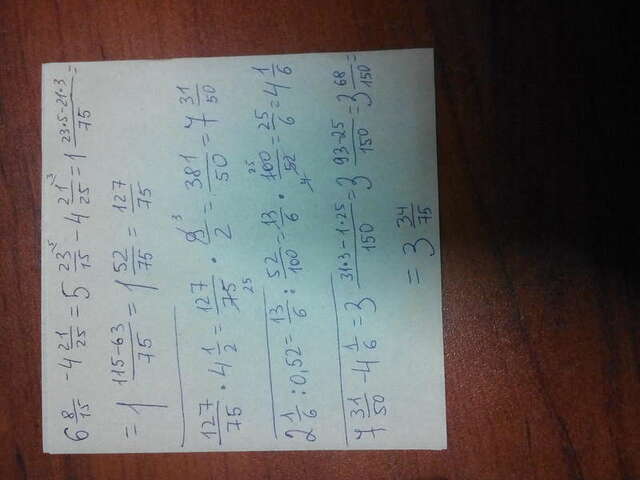 6 8/15 - 4 21/25 = 5 23/15 ⁵ - 4 21/25 ³ = 1 (23·5-21·3)/75 =
= 1 (115-63)/75 = 1 52/75 = 127/75
127/75 · 4 1/2 = 127/75 25 · 9 3/2 = 381/50 = 7 31/50
2 1/6 : 0,52 = 13/6 : 52/100 = 13/6 · 100 25/52 4 = 25/6 = 4 1/6
7 31/50 - 4 1/6 = 3 (31·3-1·25)/150 = 3 (93-25)/150 = 3 68/150 =
= 3 34/75